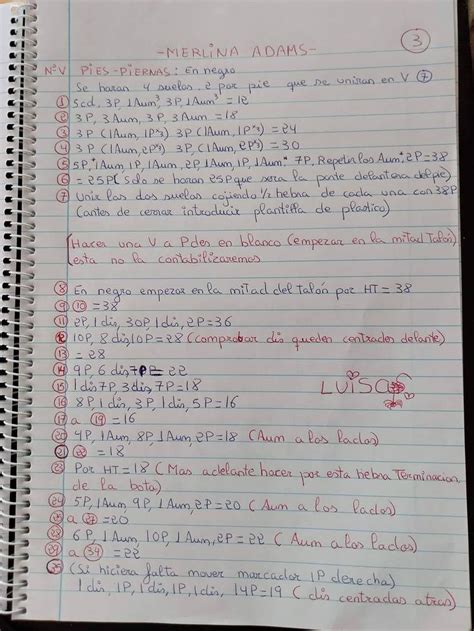 3
-MERLINA ADAMS-
NºV PIES-PIERNAS: En negro
Se haran 4 suelas. 2 por pie que se uniran en V ⑦
① 5cd, 3P, 1Aum³, 3P, 1Aum³ = 12
② 3P, 3Aum, 3P, 3Aum = 18
③ 3P (1Aum, 1Pˣ³) 3P (1Aum, 1Pˣ³) = 24
④ 3P (1Aum, 2Pˣ³) 3P (1Aum, 2Pˣ³) = 30
⑤ 5P, *1Aum, 1P, 1Aum, 2P, 1Aum, 1P, 1Aum* 7P, Repetir los Aum*, 2P = 38
⑥ = 25P (Solo se haran 25P que sera la parte delantera del pie)
⑦ Unir las dos suelas cojiendo ½ hebra de cada una con 38P
(antes de cerrar introducir plantilla de plastico)
[Hacer una V a Pdes en blanco (empezar en la mitad Talón)
esta no la contabilizaremos
⑧ En negro empezar en la mitad del talón por HT = 38
⑨ ⑩ = 38
⑪ 2P, 1dis, 30P, 1dis, 2P = 36
⑫ 10P, 8dis, 10P = 28 (comprobar dis queden centrados delante)
⑬ = 28
⑭ 9P, 6dis, 7P = 22
⑮ 1dis 7P, 3dis, 7P = 18
LUISA
⑯ 8P, 1dis, 3P, 1dis, 5P = 16
⑰ a ⑲ = 16
⑳ 4P, 1Aum, 8P, 1Aum, 2P = 18 (Aum a los lados)
㉑ ㉒ = 18
㉓ Por HT = 18 (Mas adelante hacer por esta hebra Terminacion
de la bota)
㉔ 5P, 1Aum, 9P, 1Aum, 2P = 20 (Aum a los lados)
㉕ a ㉗ = 20
㉘ 6P, 1Aum, 10P, 1Aum, 2P = 22 (Aum a los lados)
㉙ a ㉞ = 22
㉟ (Si hiciera falta mover marcador 1P derecha)
1dis, 1P, 1dis, 1P, 1dis, 14P = 19 (dis centradas atras)